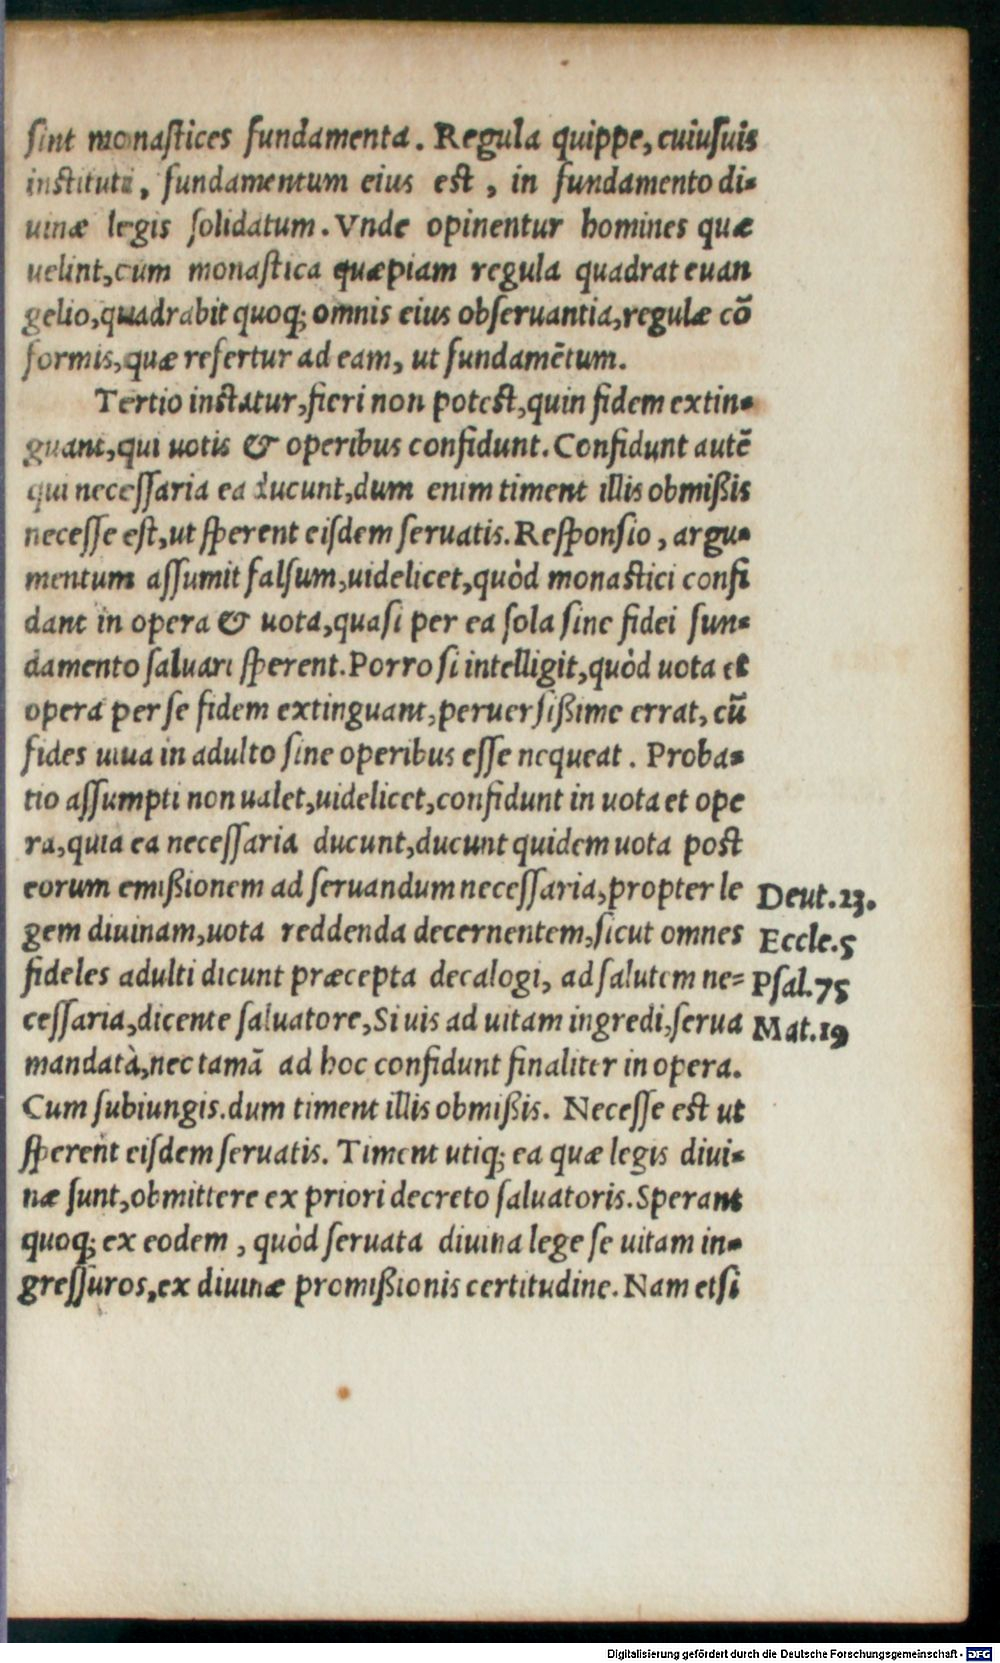 sint monastices fundamenta. Regula quippe, cuiusuis
instituti, fundamentum eius est, in fundamento di-
uinæ legis solidatum. Vnde opinentur homines quæ
uelint, cum monastica quæpiam regula quadrat euan
gelio, quadrabit quoq; omnis eius obseruantia, regulæ cõ
formis, quæ refertur ad eam, ut fundamẽtum.
Tertio instatur, fieri non potest, quin fidem extin-
guant, qui uotis & operibus confidunt. Confidunt autẽ
qui necessaria ea ducunt, dum enim timent illis obmißis
necesse est, ut sperent eisdem seruatis. Responsio, argu-
mentum assumit falsum, uidelicet, quòd monastici confi
dant in opera & uota, quasi per ea sola sine fidei fun-
damento saluari sperent. Porro si intelligit, quòd uota et
opera per se fidem extinguant, peruersißime errat, cũ
fides uiua in adulto sine operibus esse nequeat. Proba-
tio assumpti non ualet, uidelicet, confidunt in uota et ope
ra, quia ea necessaria ducunt, ducunt quidem uota post
eorum emißionem ad seruandum necessaria, propter le
Deut.23.
gem diuinam, uota reddenda decernentem, sicut omnes
Eccle.5
fideles adulti dicunt præcepta decalogi, ad salutem ne=
Psal.75
cessaria, dicente saluatore, Si uis ad uitam ingredi, serua
Mat.19
mandatà, nec tamã ad hoc confidunt finaliter in opera.
Cum subiungis. dum timent illis obmißis. Necesse est ut
sperent eisdem seruatis. Timent utiq; ea quæ legis diui-
næ sunt, obmittere ex priori decreto saluatoris. Sperant
quoq; ex eodem, quòd seruata diuina lege se uitam in-
gressuros, ex diuinæ promißionis certitudine. Nam etsi
Digitalisierung gefördert durch die Deutsche Forschungsgemeinschaft - DFG